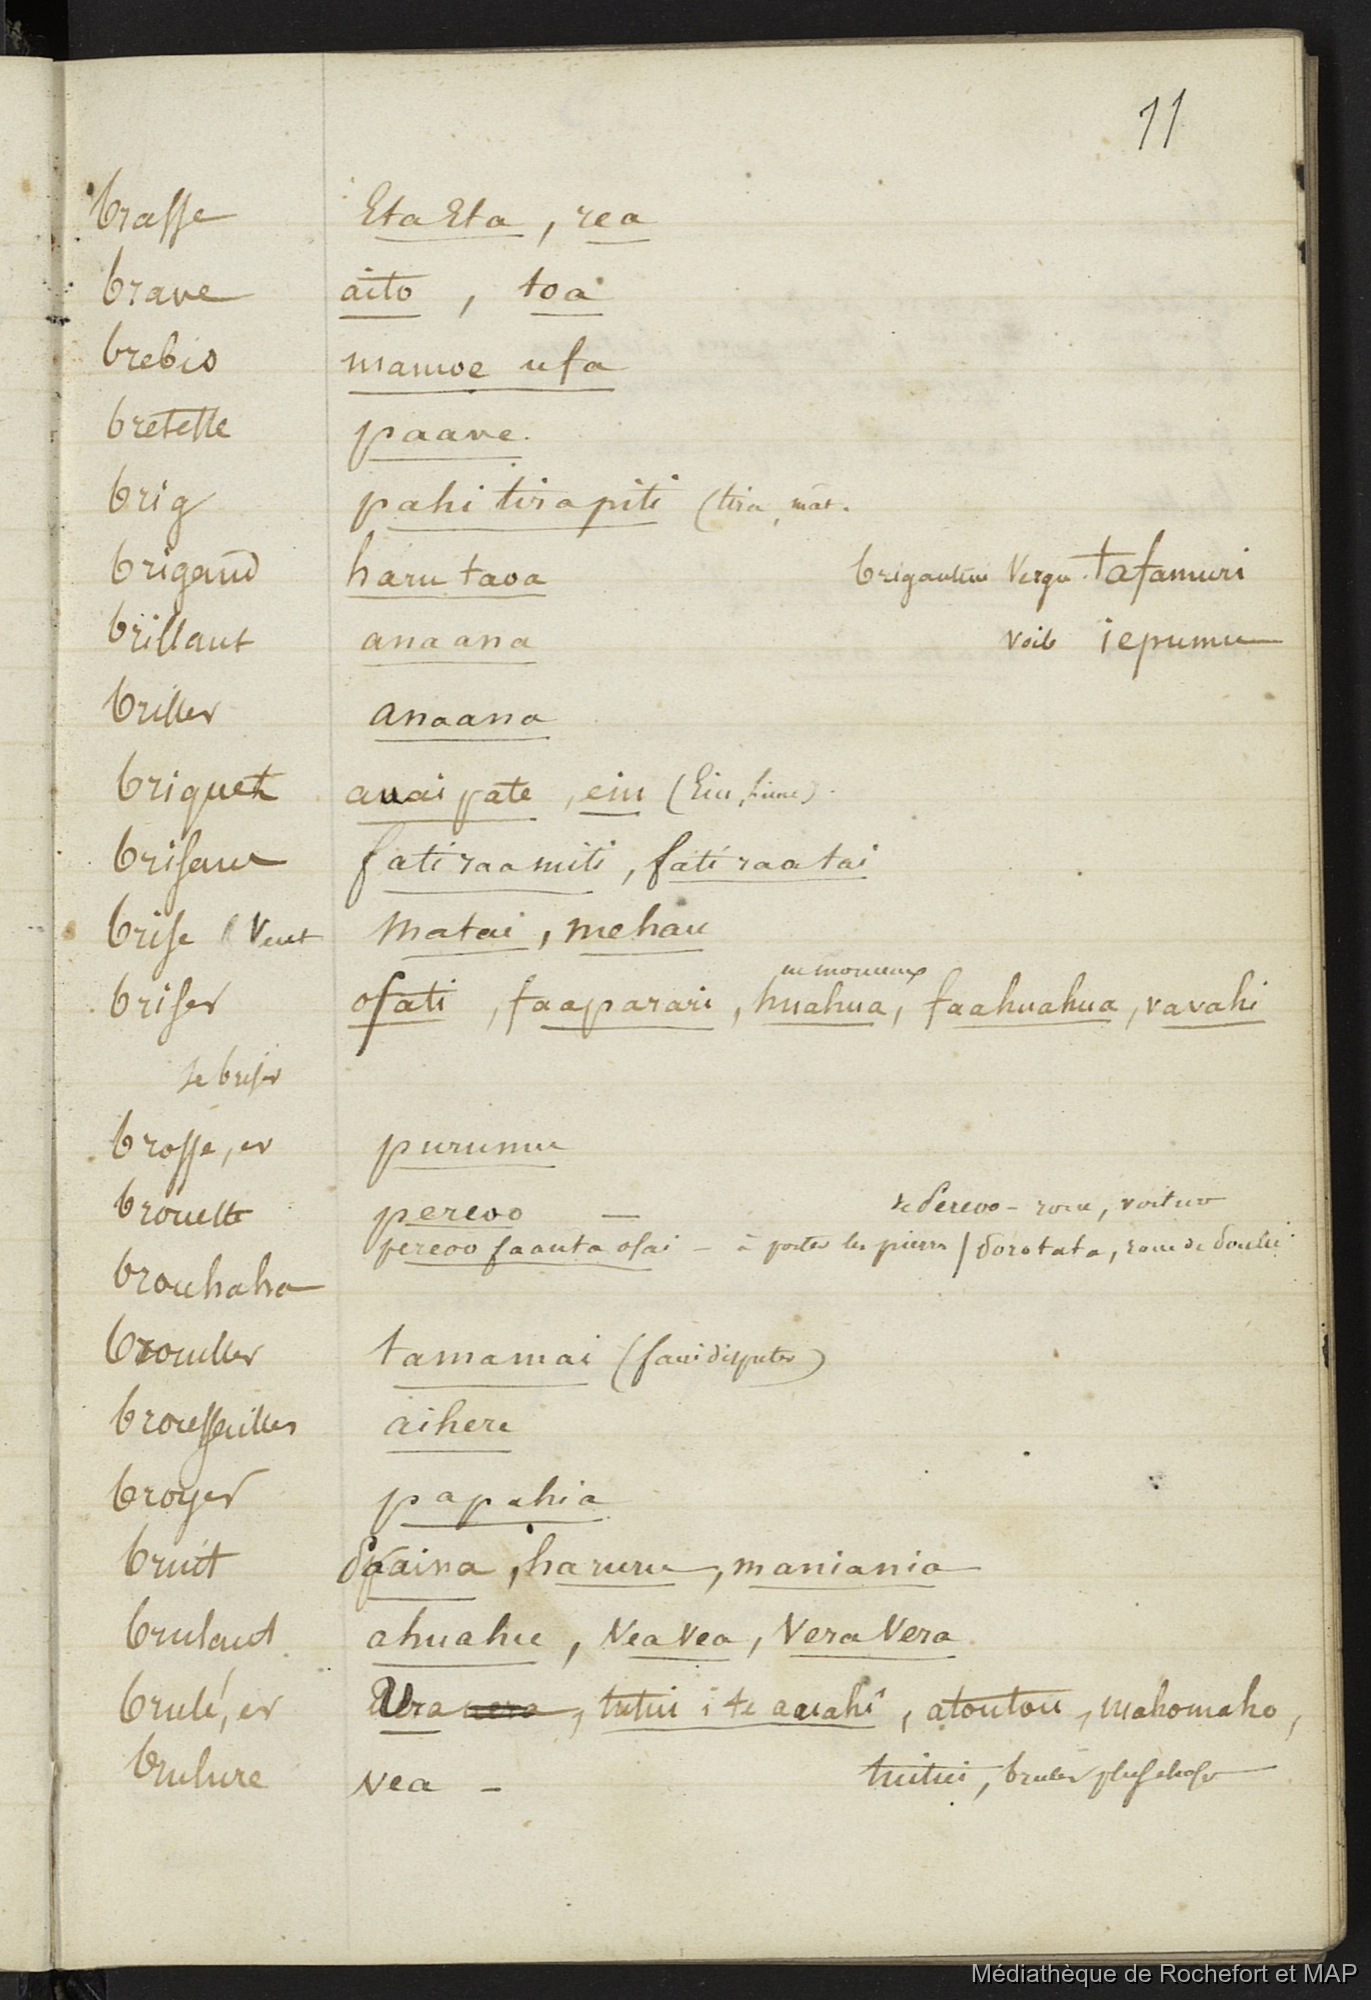 11
brasse EtaEta, rea
brave aito, toa
brebis mamoe ufa
bretelle paave.
brig pahi tirapiti (tira, mât.
brigand haru taoa brigantine Vergue. tafamuri
brillant anaana voile iepumu
briller anaana
briquet auai pate, eiu (Eiu, lime).
brisant fatiraamiti, fatiraatai
brise Vent matai, mehau
en morceaux
briser ofati, faaparari, huahua, faahuahua, vavahi
se briser
brosse, er purumu
brouette pereoo — Pereoo - roue, voiture
pereoo faauta ofai — à porter les pierres / Porotata, roue de Poulie
brouhaha
brouiller tamamai (faire disputer)
broussailles aihere
broyer papahia
bruit Paaina, haruru, maniania
brulant ahuahu, VeaVea, VeraVera
brulé, er Ura vera, tutui i te auahi, atoutou, mahomaho,
brulure Vea — tuitui, bruler plus. chose
Médiathèque de Rochefort et MAP